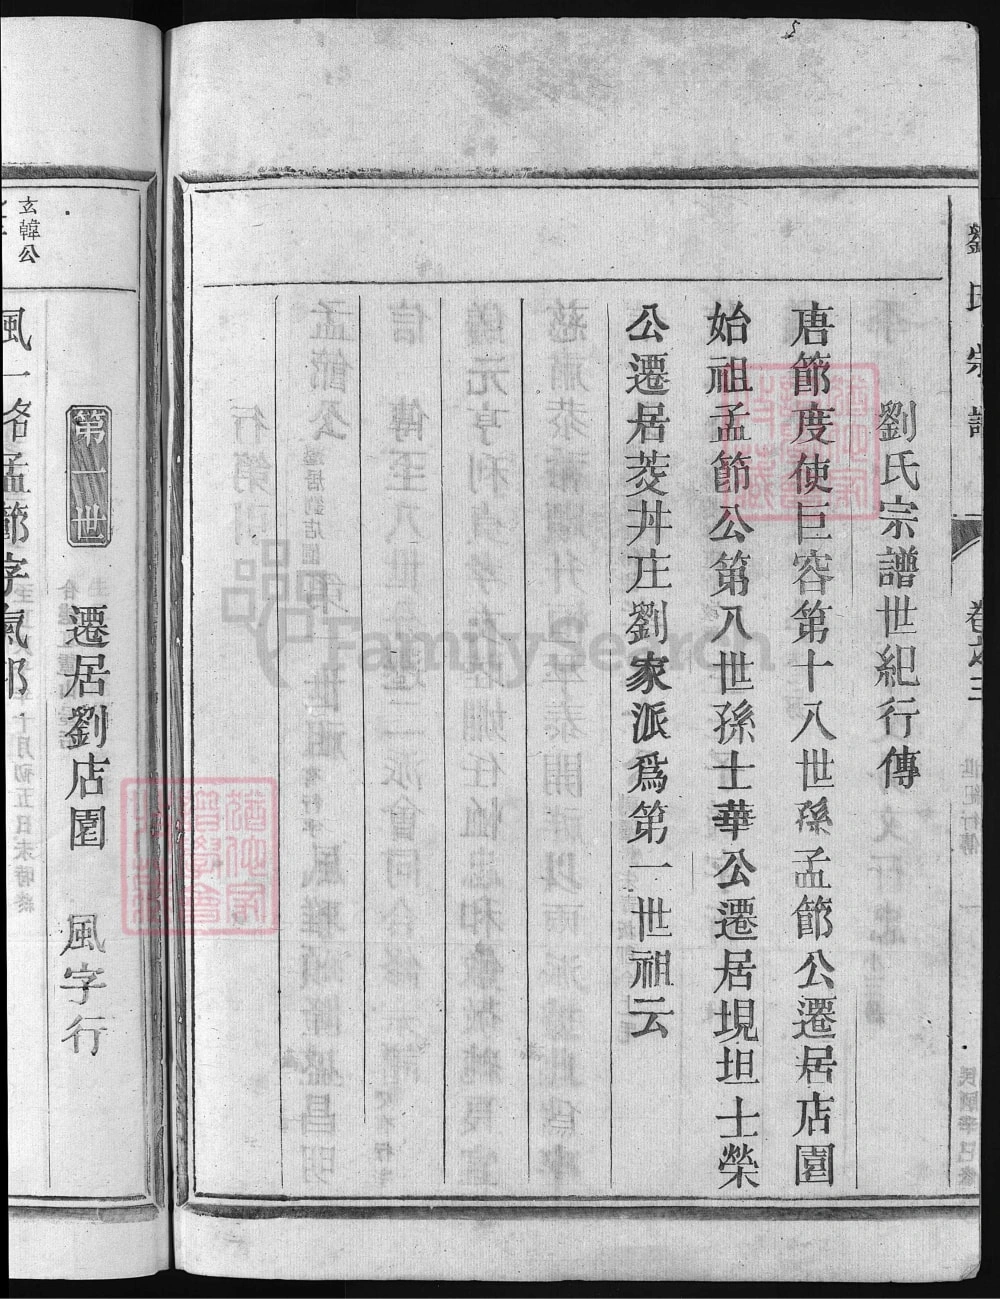 劉氏宗譜 卷之三 世紀行傳 一 民國辛巳修
劉氏宗譜世紀行傳
唐節度使巨容第十八世孫孟節公遷居店園
始祖孟節公第八世孫士華公遷居垷坦士榮
公遷居茭井庄劉家派為第一世祖云
第一世 遷居劉店園 風字行
玄韓公
風一 孟節字
FamilySearch